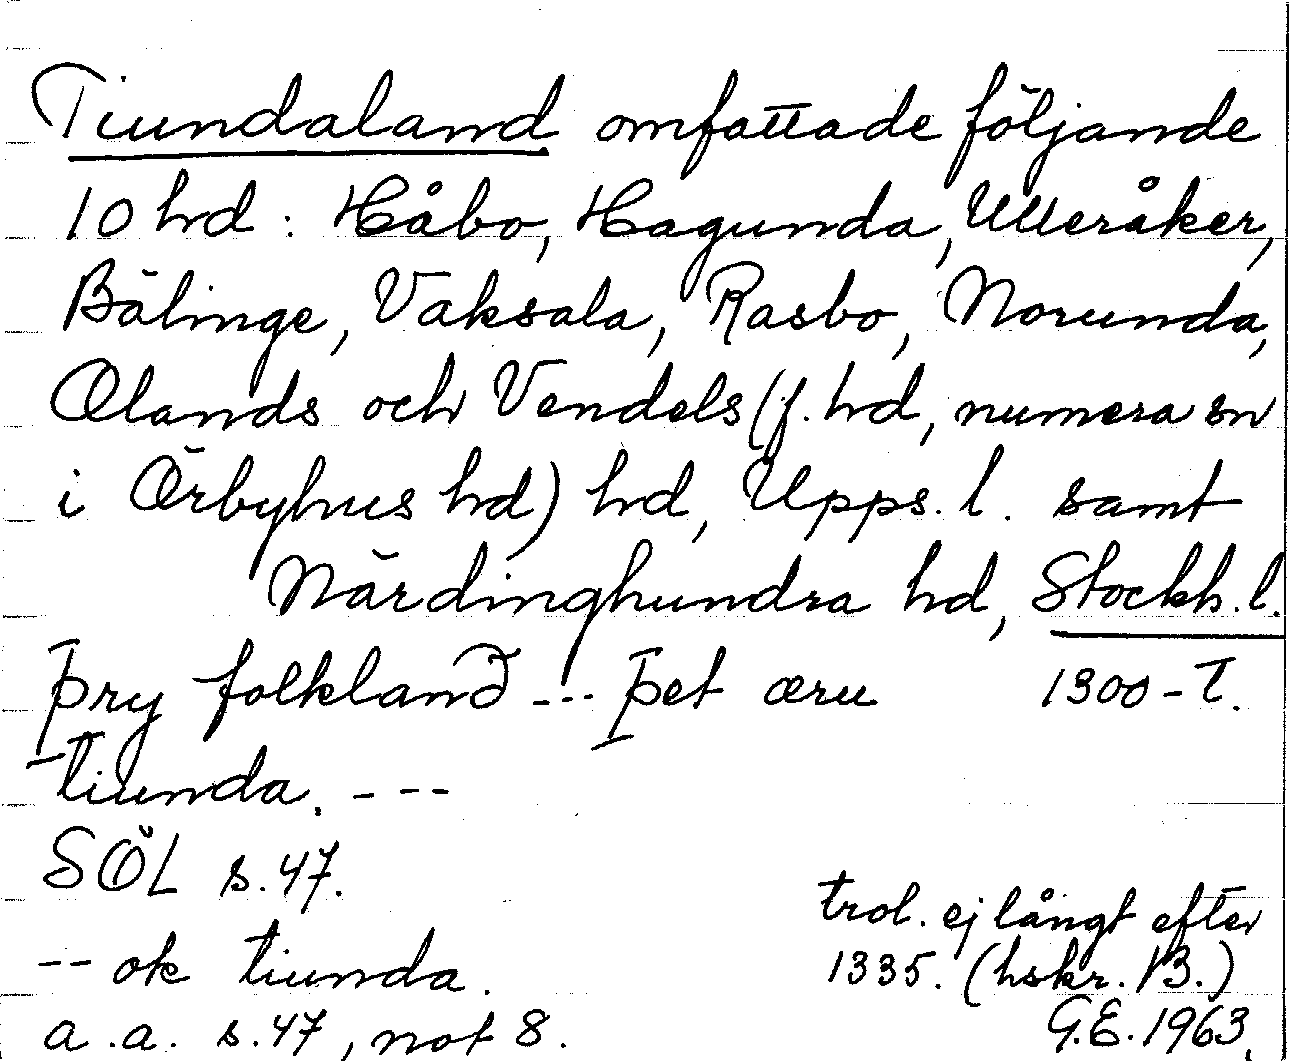 Tiundaland omfattade följande
10 hd: Håbo, Hagunda, Ulleråker,
Bälinge, Vaksala, Rasbo, Norunda,
Olands och Vendels (f. hd, numera sn
i Örbyhus hd) hd, Upps. l. samt
Närdinghundra hd, Stockh. l.
þry folkland --- þet æru 1300-t.
tiunda. ---
SÖL s. 47.
trol. ej långt efter
-- ok tiunda. 1335. (hskr. B.)
a. a. s. 47, not 8. G.E. 1963.